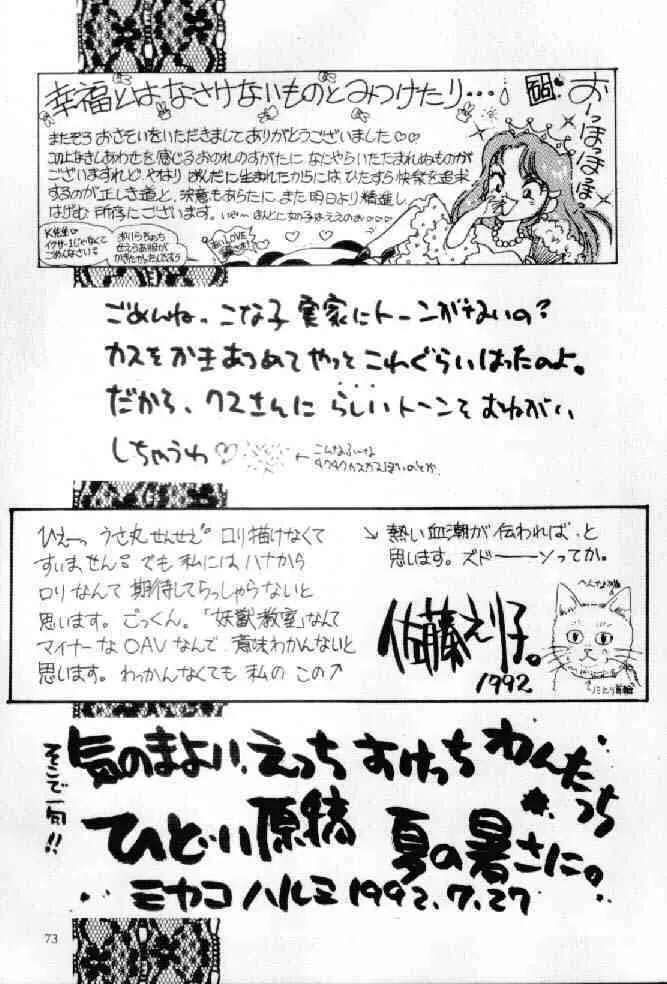 幸福とは、なさけないものとみつけたり…
おーっほっほっほ
またぞろ おさそいをいただきまして ありがとうございました♡♡
この上なきしあわせを感じる おのれのすがたに なにやらいたたまれぬものが
ございますれど、やはり おんなに生まれたからには ひたすら快楽を追求
するのが正しき道と、決意もあらたに、また明日より精進し
はげむ 所存にございます。
K先生♡
イクサー1じゃなくて
ごめんなさい
ごめんね、こな子 実家にトーンがないの?
カスをかきあつめてやっとこれぐらいはったのよ。
だから、クスさんに らしいトーンを おねがい
しちゃうわ♡
← こんなふーな
ひえーっ うさ丸せんせえ ロリ描けなくて
すいません。でも 私には ハナから
ロリなんて 期待してらっしゃらないと
思います。ごっくん。「妖獣教室」なんて
マイナーな OAV なんで、意味わかんないと
思います。わっかんなくても 私の この↗
↘ 熱い血潮が 伝われば、と
思います。ズドーーンってか。
佐藤えり子。
1992
そこで一句!!
気のまよい、えっち すけっち わんたっち
ひどい原稿 夏の暑さに。
ミヤコ ハルミ 1992.7.27
73